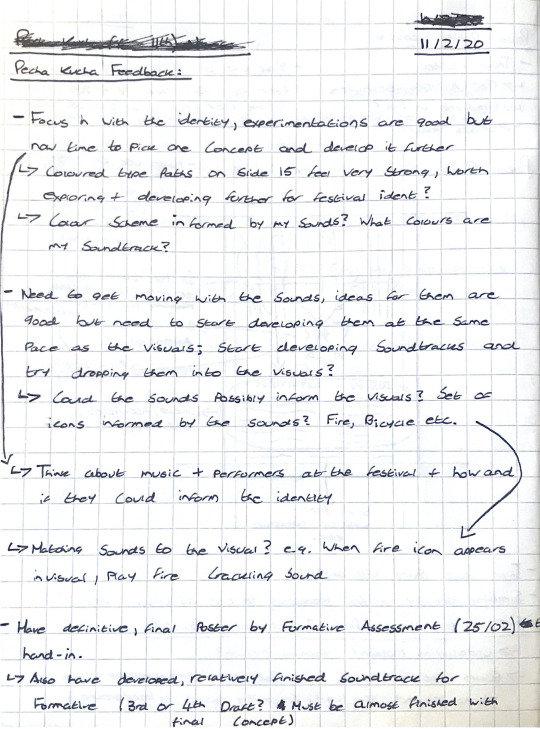 11/2/20
Pecha Kucha Feedback:
- Focus in with the identity, experimentations are good but
now time to Pick one Concept and develop it further
↳ Coloured type Paths on Side 15 feel very Strong, worth
exploring + developing further for festival ident?
↳ Colour Scheme informed by my Sounds? What Colours are
my Soundtrack?
- Need to get moving with the Sounds, ideas for them are
good but need to Start developing them at the Same
Pace as the Visuals; Start developing Soundtracks and
try dropping them into the Visuals?
↳ Could the Sounds Possibly inform the Visuals? Set of
icons informed by the Sounds? Fire, Bicycle etc.
↳ Think about music + Performers at the festival + how and
if they Could inform the identity
↳ Matching Sounds to the Visual? e.g. When fire icon appears
in visual, Play Fire Crackling Sound
- Have definitive, final Poster by Formative Assessment (25/02)
hand-in.
↳ Also have developed, relatively finished Soundtrack for
Formative (3rd or 4th Draft? Must be almost finished with
final Concept)